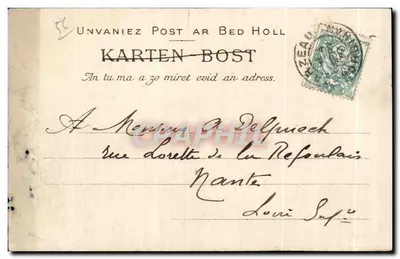 56
UNVANIEZ POST AR BED HOLL
KARTEN-BOST
An tu ma a zo miret evid an adress.
A Monsieur A Delpuech
rue Lorette de la Refoulais
Nantes
Loire Infre